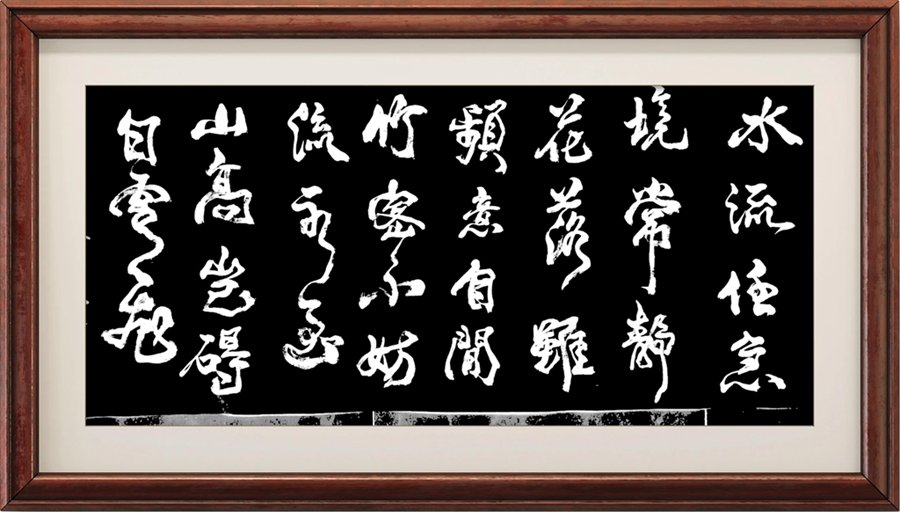 水流任急
境常靜
花落雖
頻意自閒
竹密不妨
流水過
山高豈碍
白雲飛